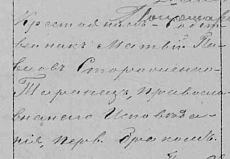 Крестьянинъ собст
венникъ Матвѣй Па
вловъ Стороженко
Таранецъ, православ
наго Исповѣда
нія, перв. бракомъ.